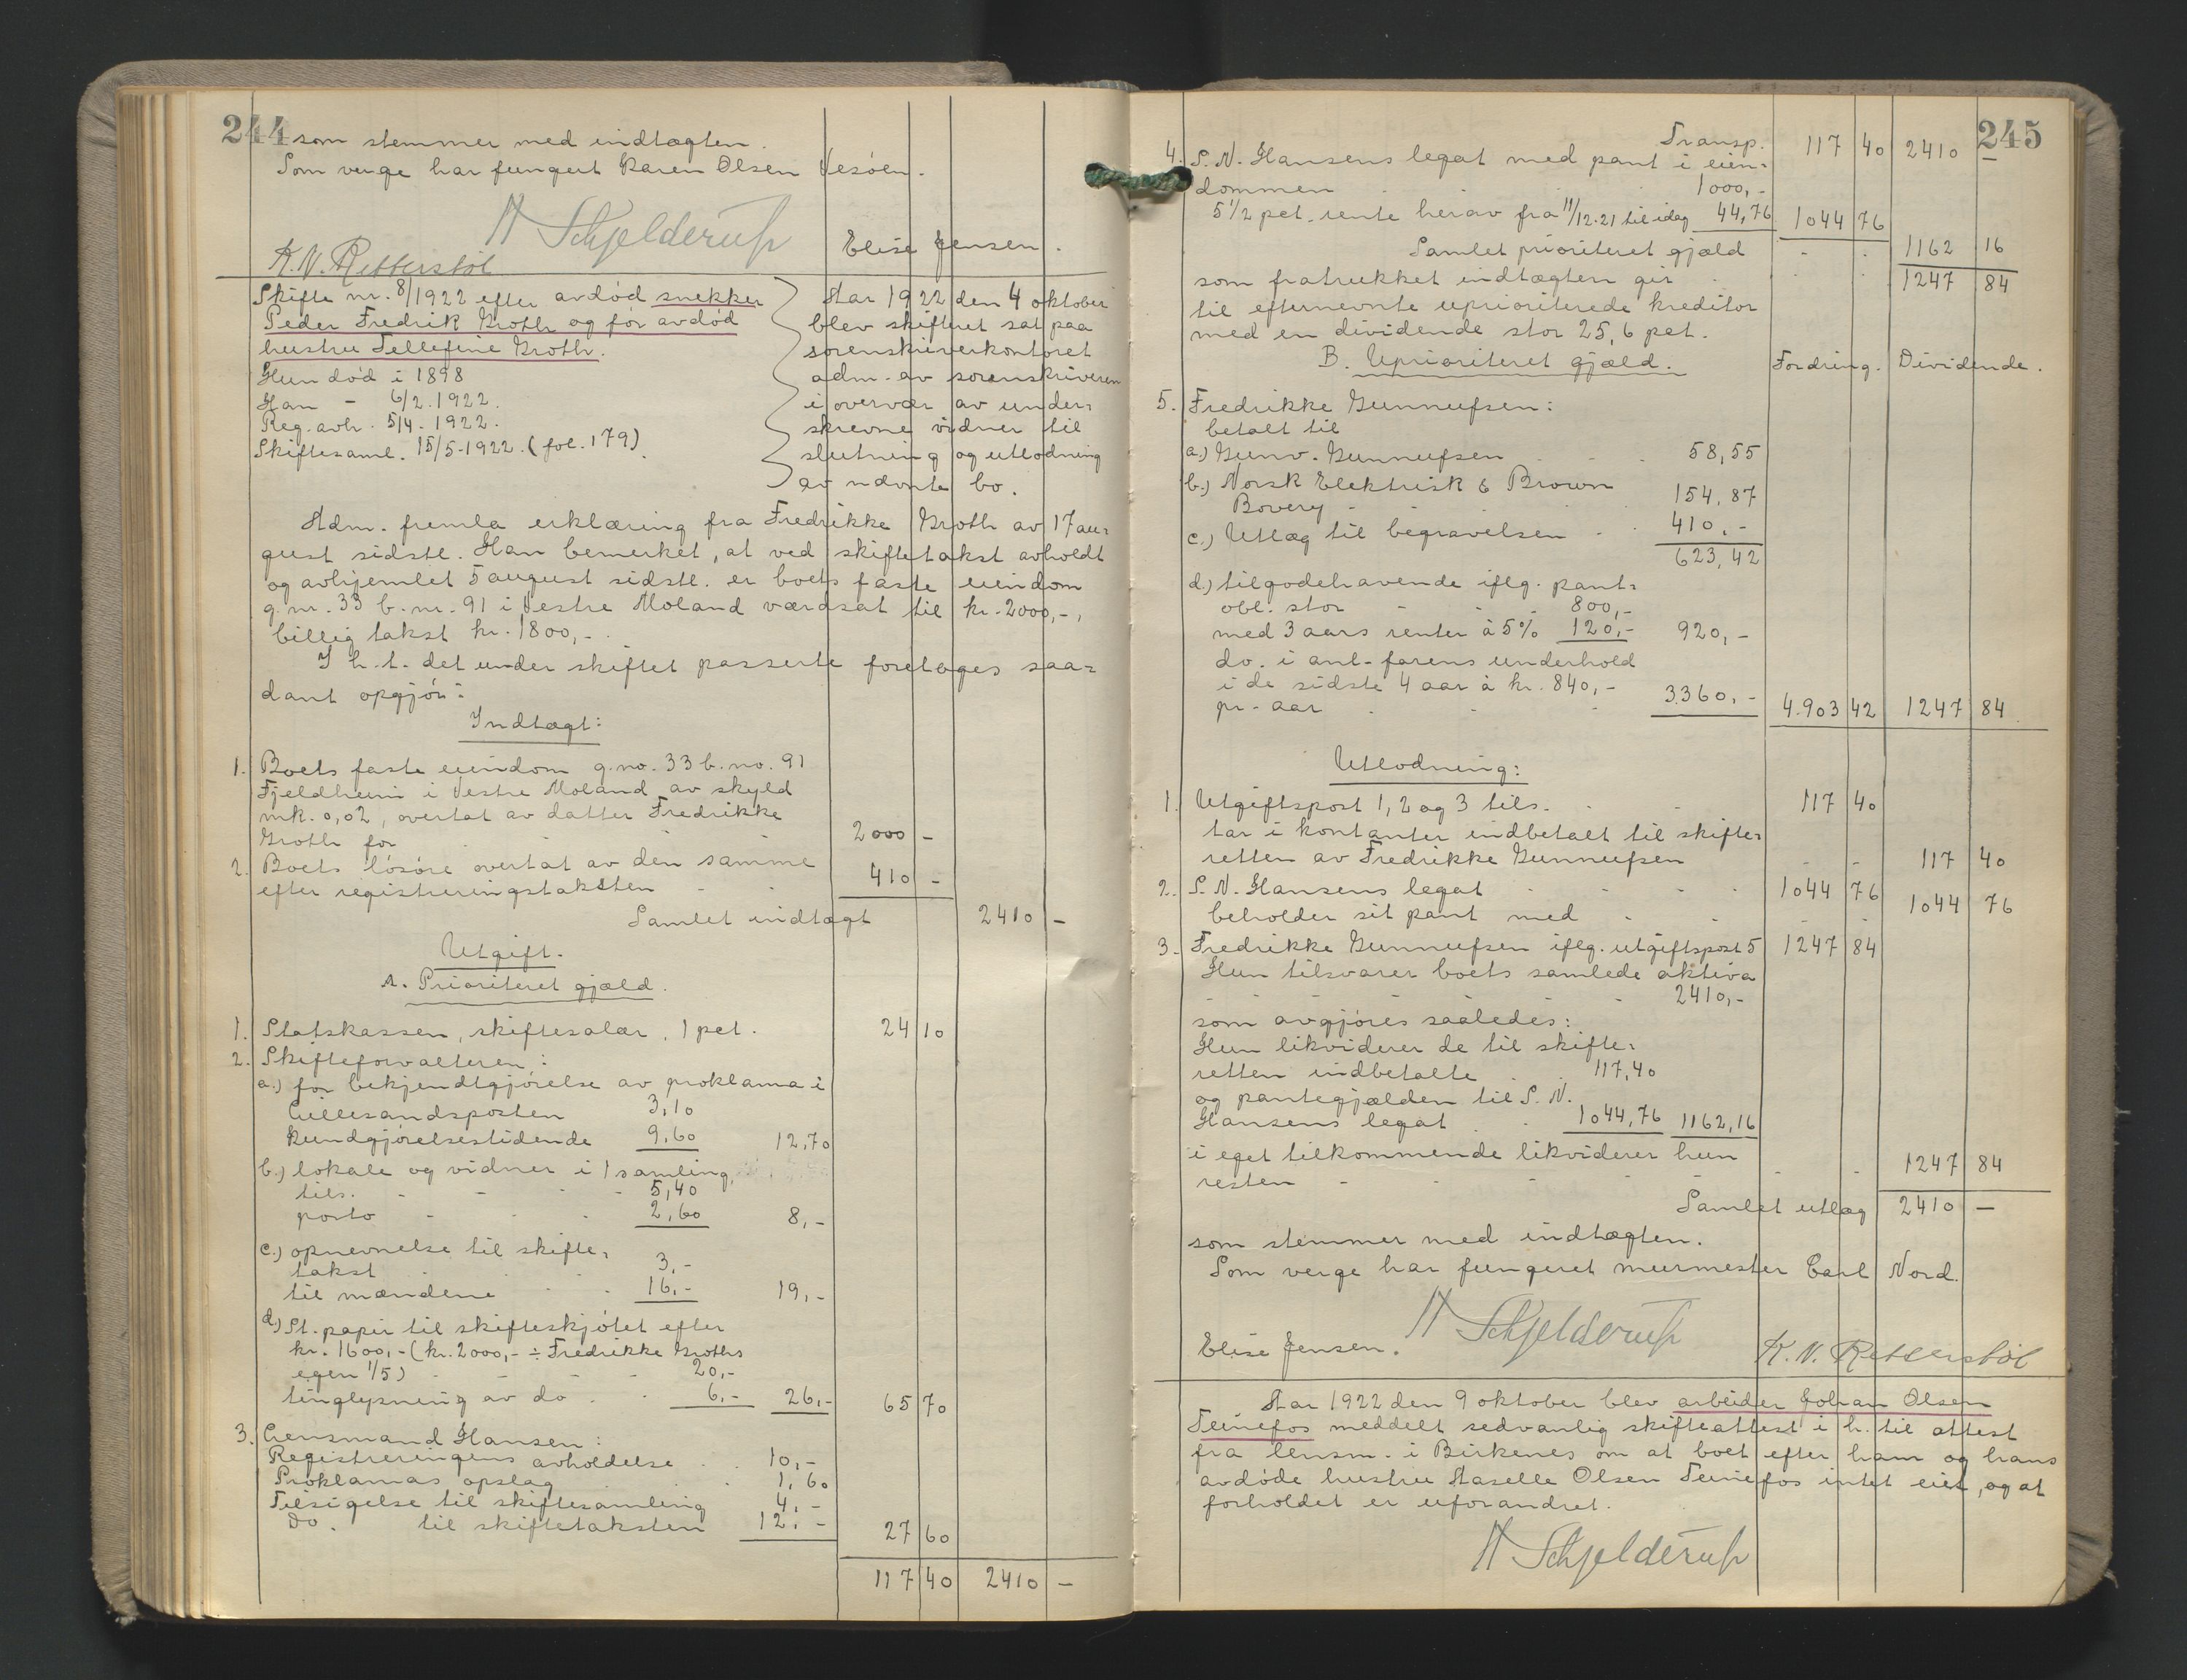 244
som stemmer med indtægten.
Som verge har fungert Karen Olsen Vesöen.
H Schjelderup
K. N. Rettersböl
Elise Jensen.
Skifte nr. 8/1922 efter avdöd snekker
Peder Fredrik Groth og för avdöd
hustru Tellefine Groth.
Hun död i 1898
Han - 6/2.1922.
Reg. avh. 5/4. 1922.
Skiftesaml. 15/5-1922. (fol. 179)
Aar 1922 den 4 oktober
blev skifteret sat paa
sorenskriverkontoret
adm. av sorenskriveren
i overvær av under=
skrevne vidner til
slutning og utlodning
av nævnte bo.
Adm. fremla erklæring fra Fredrikke Groth av 17 au=
gust sidstl. Han bemerket, at ved skiftetakst avholdt
og avhjemlet 5 august sidstl. er boets faste eiendom
g.nr. 33 b.nr. 91 i Vestre Moland værdsat til kr. 2000,-,
billig takst kr. 1800,-.
I h.t. det under skiftet passerte foretages saa=
dant opgjör:
Indtægt:
1. Boets faste eiendom g.no. 33 b.no. 91
Fjeldheim i Vestre Moland av skyld
mk. 0,02, overtat av datter Fredrikke
Groth for 2000 -
2. Boets lösöre overtat av den samme
efter registreringstaksten - - 410 -
Samlet indtægt 2410 -
Utgift.
A. Prioriteret gjæld.
1. Statskassen, skiftesalær, 1 pct. 24 10
2. Skifteforvalteren:
a.) for bekjendtgjörelse av proklama i
Lillesandsposten 3,10
Kundgjörelsestidende 9,60 12,70
b.) lokale og vidner i 1 samling,
tils. - - - 5,40
porto - - 2,60 8,-
c.) opnevnelse til skifte=
takst 3,-
til mændene 16,- 19,-
d.) St. papir til skifteskjötet efter
kr. 1600,- (kr. 2000,- ÷ Fredrikke Groths
egen 1/5) - - - 20,-
tinglysning av do. 6,- 26,- 65 70
3. Lensmand Hansen:
Registreringens avholdelse . . 10,-
Proklamas opslag 1,60
Tilsigelse til skiftesamling 4,-
Do. til skiftetaksten 12,- 27 60
117 40 2410 -
245
Transp. 117 40 2410 -
4. S. N. Hansens legat med pant i eien=
dommen 1000,-
5 1/2 pct. rente herav fra 11/12.21 til idag 44,76 1044 76
Samlet prioriteret gjæld - - 1162 16
som fratrukket indtægten gir . . 1247 84
til efternevnte uprioriterede kreditor
med en dividende stor 25,6 pct.
B. Uprioriteret gjæld. Fordring. Dividende.
5. Fredrikke Gunnufsen:
betalt til
a.) Gunv. Gunnufsen 58,55
b.) Norsk Elektrisk & Brown
Bovery - 154,87
c.) Utlæg til begravelsen - 410,-
623,42
d.) tilgodehavende iflg. pant=
obl. stor - - 800,-
med 3 aars renter à 5% 120,- 920,-
do. i anl. farens underhold
i de sidste 4 aar à kr. 840,-
pr. aar - - 3360,- 4.903 42 1247 84
Utlodning:
1. Utgiftspost 1, 2 og 3 tils. - - 117 40
tar i kontanter indbetalt til skifte=
retten av Fredrikke Gunnufsen - - 117 40
2. S. N. Hansens legat - - - 1044 76
beholder sit pant med - - 1044 76
3. Fredrikke Gunnufsen iflg. utgiftspost 5 1247 84
Hun tilsvarer boets samlede aktiva
2410,-
som avgjöres saaledes:
Hun likviderer de til skifte=
retten indbetalte 117,40
og pantegjælden til S. N.
Hansens legat 1044,76 1162,16
i eget tilkommende likviderer hun
resten - - - 1247 84
Samlet utlæg 2410 -
som stemmer med indtægten.
Som verge har fungeret murmester Carl Nord.
H Schjelderup
Elise Jensen.
K. N. Rettersböl
Aar 1922 den 9 oktober blev arbeider Johan Olsen
Teinefos meddelt sedvanlig skifteattest i h. til attest
fra lensm. i Birkenes om at boet efter ham og hans
avdöde hustru Aaselle Olsen Teinefos intet eiet, og at
forholdet er uforandret.
H Schjelderup